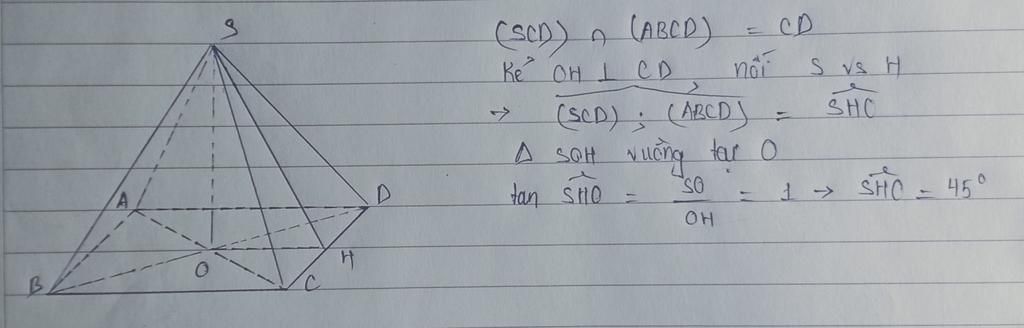 S
A
D
O
H
B
C
(SCD) ∩ (ABCD) = CD
Kẻ OH ⊥ CD, nối S vs H
→ (SCD) ; (ABCD) = SHO
Δ SOH vuông tại O
tan SHO = SO/OH = 1 → SHO = 45°